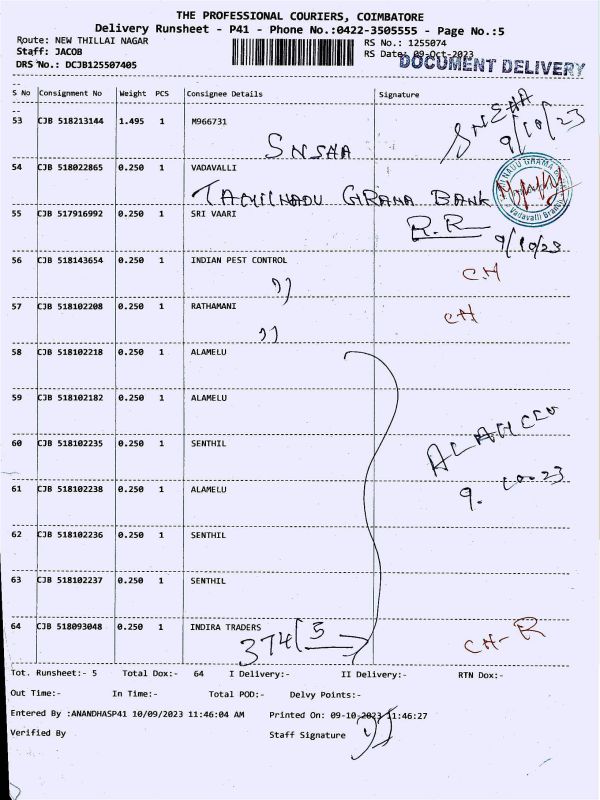 THE PROFESSIONAL COURIERS, COIMBATORE
Delivery Runsheet - P41 - Phone No.:0422-3505555 - Page No.:5
Route: NEW THILLAI NAGAR RS No.: 1255074
Staff: JACOB RS Date: 09-Oct-2023
DOCUMENT DELIVERY
DRS No.: DCJB125507405
S No Consignment No Weight PCS Consignee Details Signature
53 CJB 518213144 1.495 1 M966731
SNEHA
9/10/23
SNSHA
54 CJB 518022865 0.250 1 VADAVALLI
TAMILNADU GRAMA BANK
Vadavalli Branch
55 CJB 517916992 0.250 1 SRI VAARI
R.R
9/10/23
56 CJB 518143654 0.250 1 INDIAN PEST CONTROL
CH
57 CJB 518102208 0.250 1 RATHAMANI
CH
58 CJB 518102218 0.250 1 ALAMELU
59 CJB 518102182 0.250 1 ALAMELU
60 CJB 518102235 0.250 1 SENTHIL
ALAMELU
61 CJB 518102238 0.250 1 ALAMELU
9.10.23
62 CJB 518102236 0.250 1 SENTHIL
63 CJB 518102237 0.250 1 SENTHIL
64 CJB 518093048 0.250 1 INDIRA TRADERS
374/5
CH-R
Tot. Runsheet:- 5 Total Dox:- 64 I Delivery:- II Delivery:- RTN Dox:-
Out Time:- In Time:- Total POD:- Delvy Points:-
Entered By :ANANDHASP41 10/09/2023 11:46:04 AM Printed On: 09-10-2023 11:46:27
Verified By Staff Signature